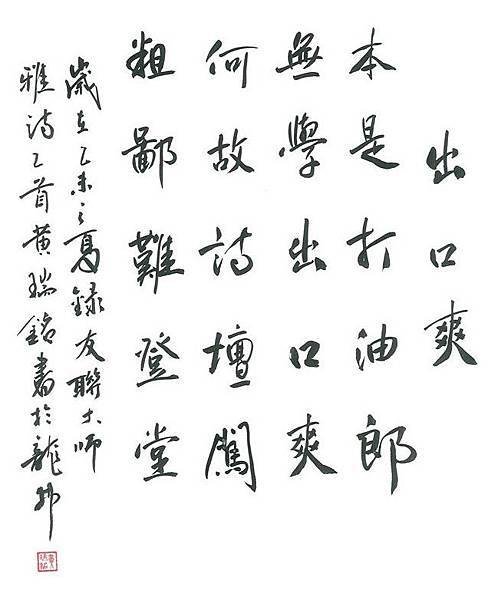 出口爽
本是打油郎
無學出口爽
何故詩壇闖
粗鄙難登堂
歲在乙未之夏錄友聯大師
雅詩乙首黃瑞銘書於龍